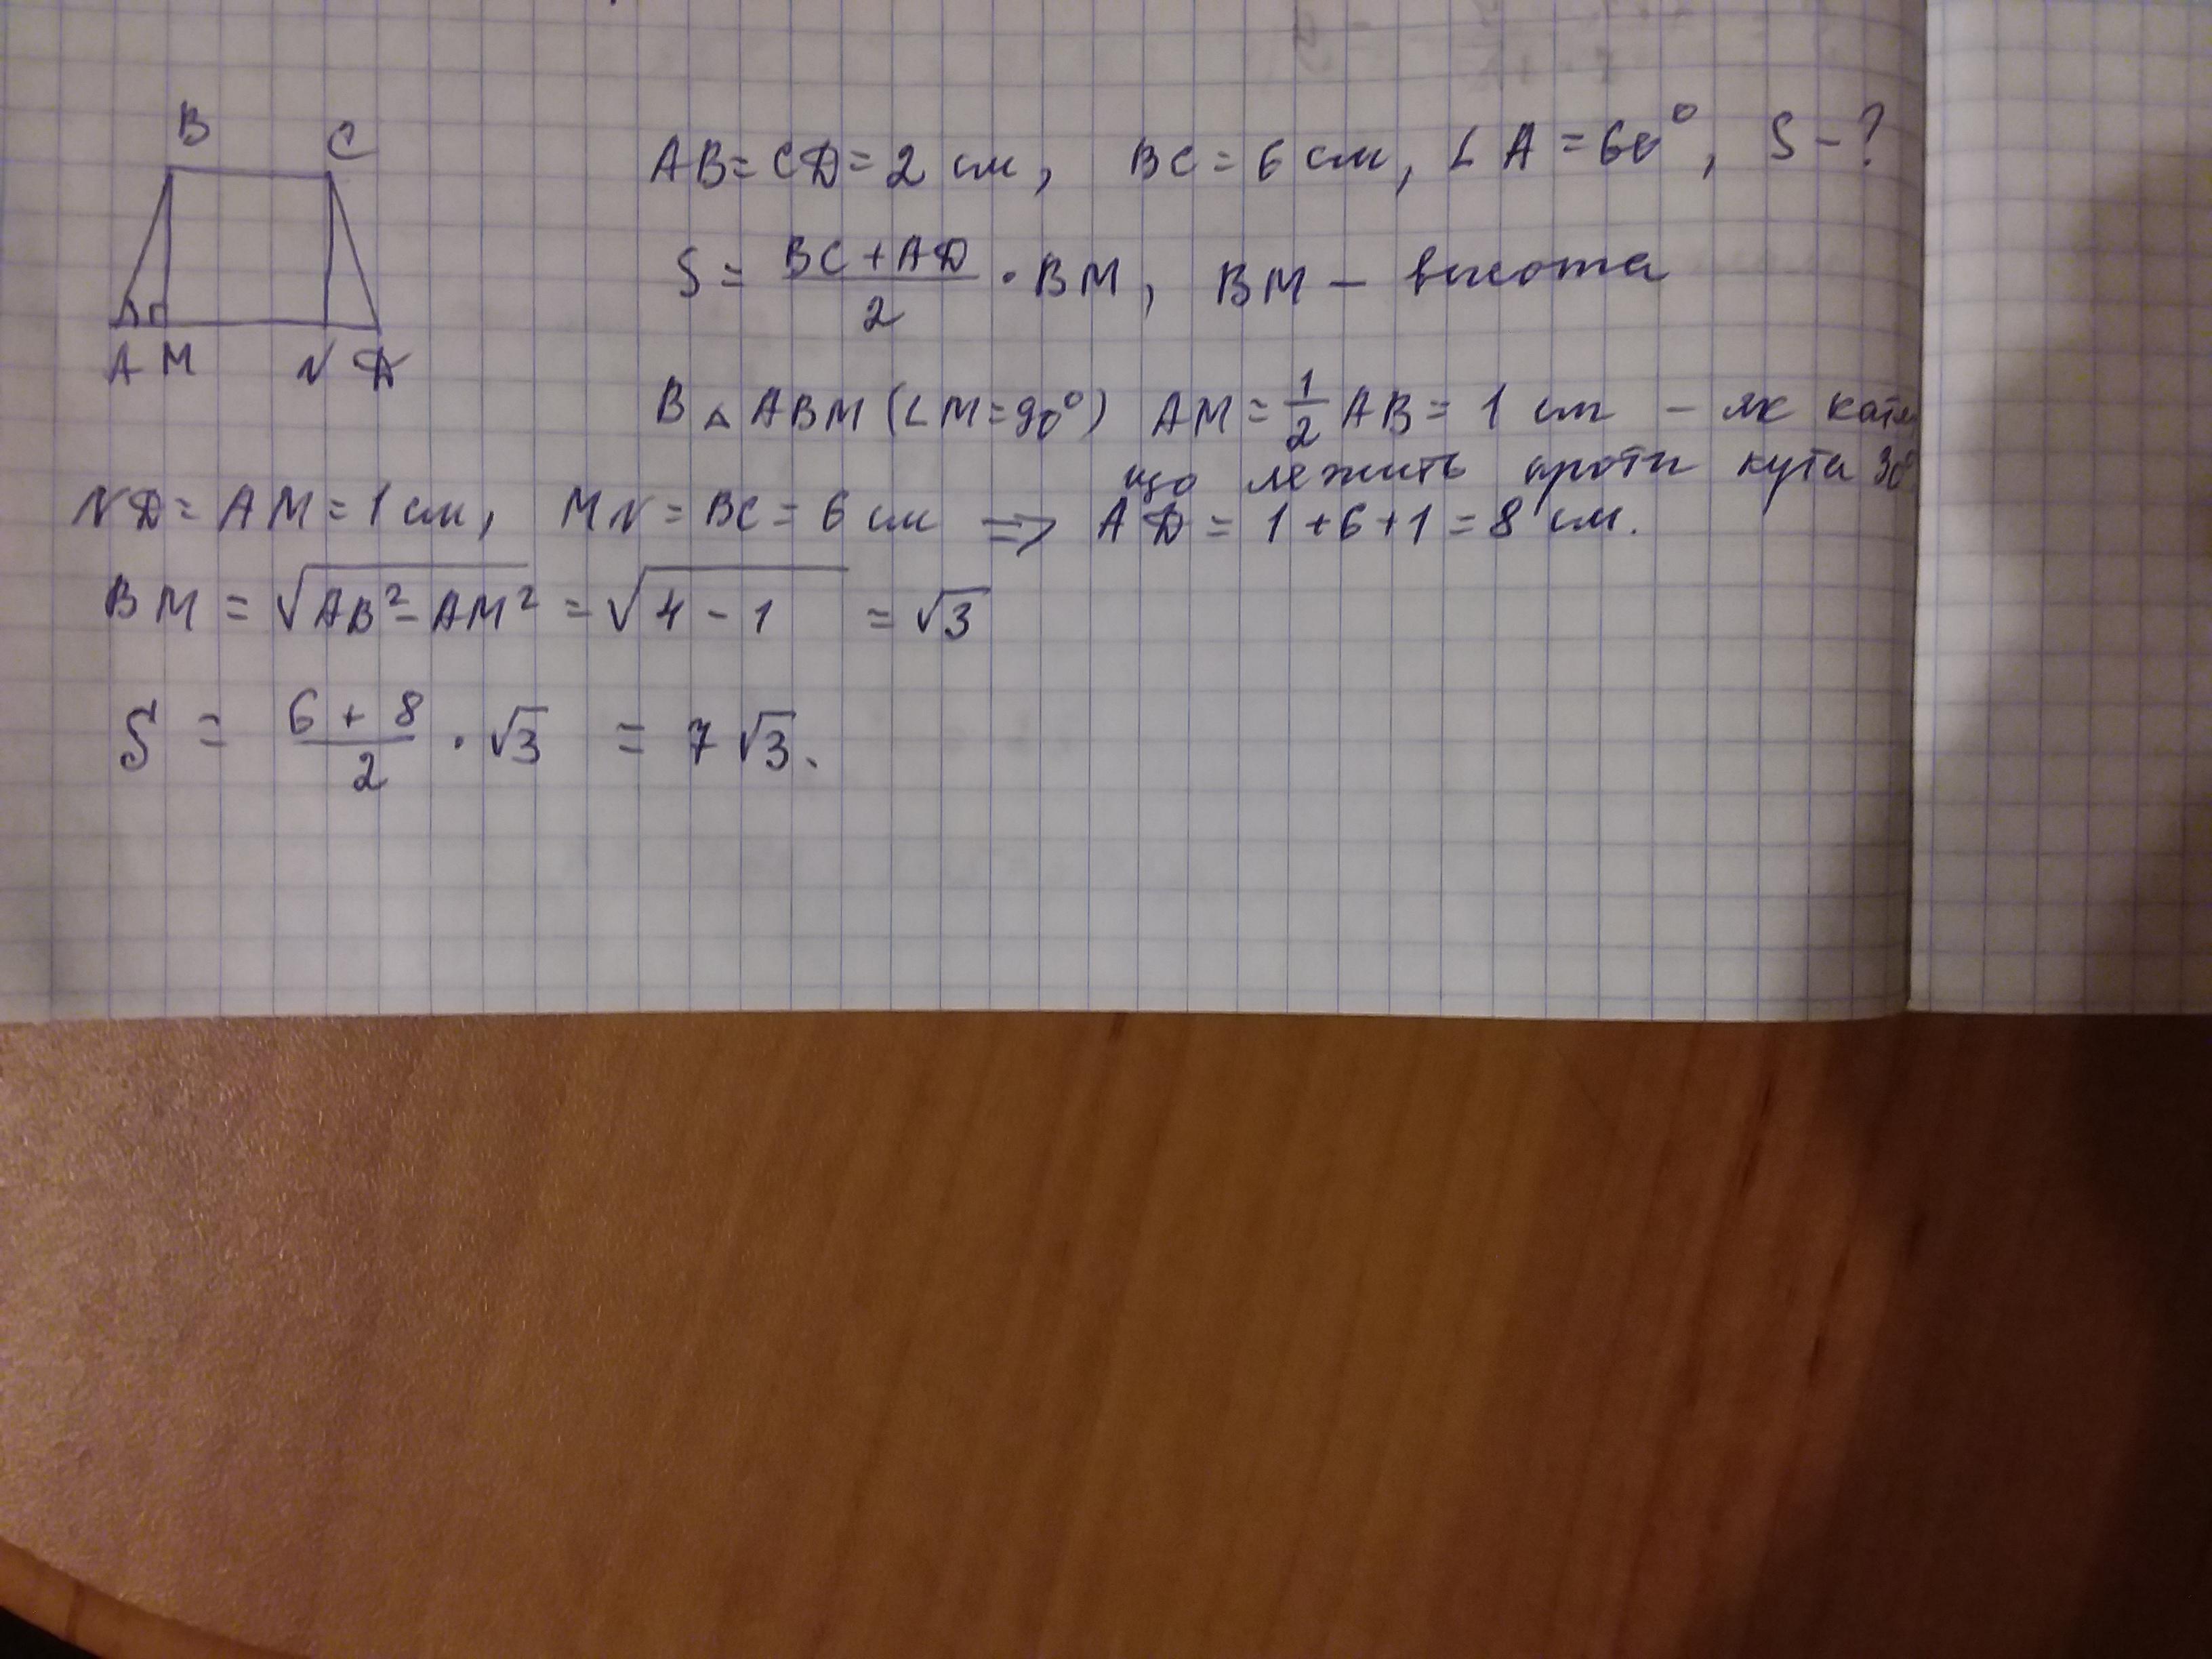 B C
A M N D
AB = CD = 2 см, BC = 6 см, ∠A = 60°, S - ?
S = \frac{BC + AD}{2} · BM, BM – высота
В △ ABM (∠M = 90°) AM = \frac{1}{2} AB = 1 см – як
що лежить проти кута 30°
ND = AM = 1 см, MN = BC = 6 см ⇒ AD = 1 + 6 + 1 = 8 см.
BM = \sqrt{AB² - AM²} = \sqrt{4 - 1} = √3
S = \frac{6 + 8}{2} · √3 = 7√3.